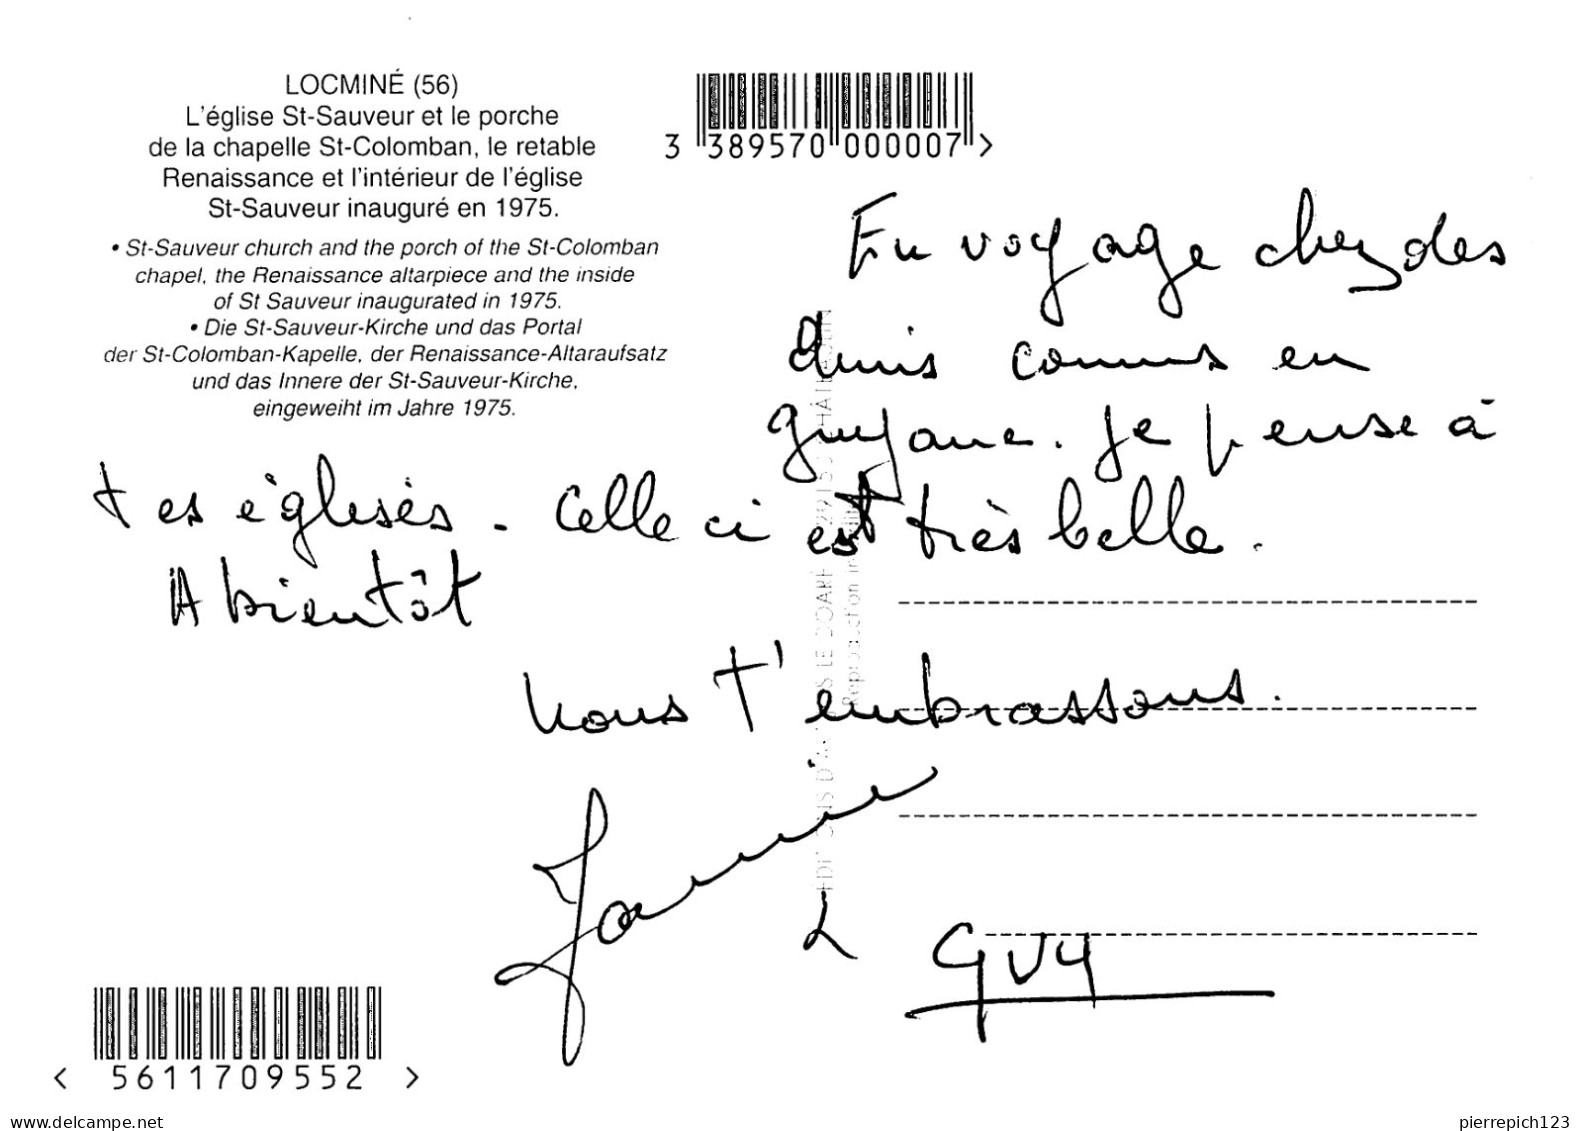 LOCMINÉ (56)
L'église St-Sauveur et le porche
de la chapelle St-Colomban, le retable
Renaissance et l'intérieur de l'église
St-Sauveur inauguré en 1975.
• St-Sauveur church and the porch of the St-Colomban
chapel, the Renaissance altarpiece and the inside
of St Sauveur inaugurated in 1975.
• Die St-Sauveur-Kirche und das Portal
der St-Colomban-Kapelle, der Renaissance-Altaraufsatz
und das Innere der St-Sauveur-Kirche,
eingeweiht im Jahre 1975.
3 389570 000007 >
En voyage chez des
amis connus en
guyane. Je pense à
tes églises. Celle ci est très belle.
A bientôt
Nous t'embrassons.
&
GUY
< 5611709552 >
www.delcampe.net
pierrepich123